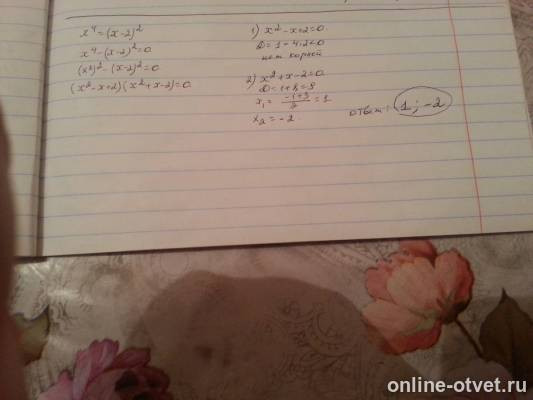 x⁴=(x-2)²
x⁴-(x-2)²=0.
(x²)²-(x-2)²=0
(x²-x+2)(x²+x-2)=0.
1) x²-x+2=0.
D=1-4·2<0
нет корней
2) x²+x-2=0.
D=1+8=9
x₁= (-1+3)/2 =1
x₂=-2.
ответ: 1; -2
online-otvet.ru